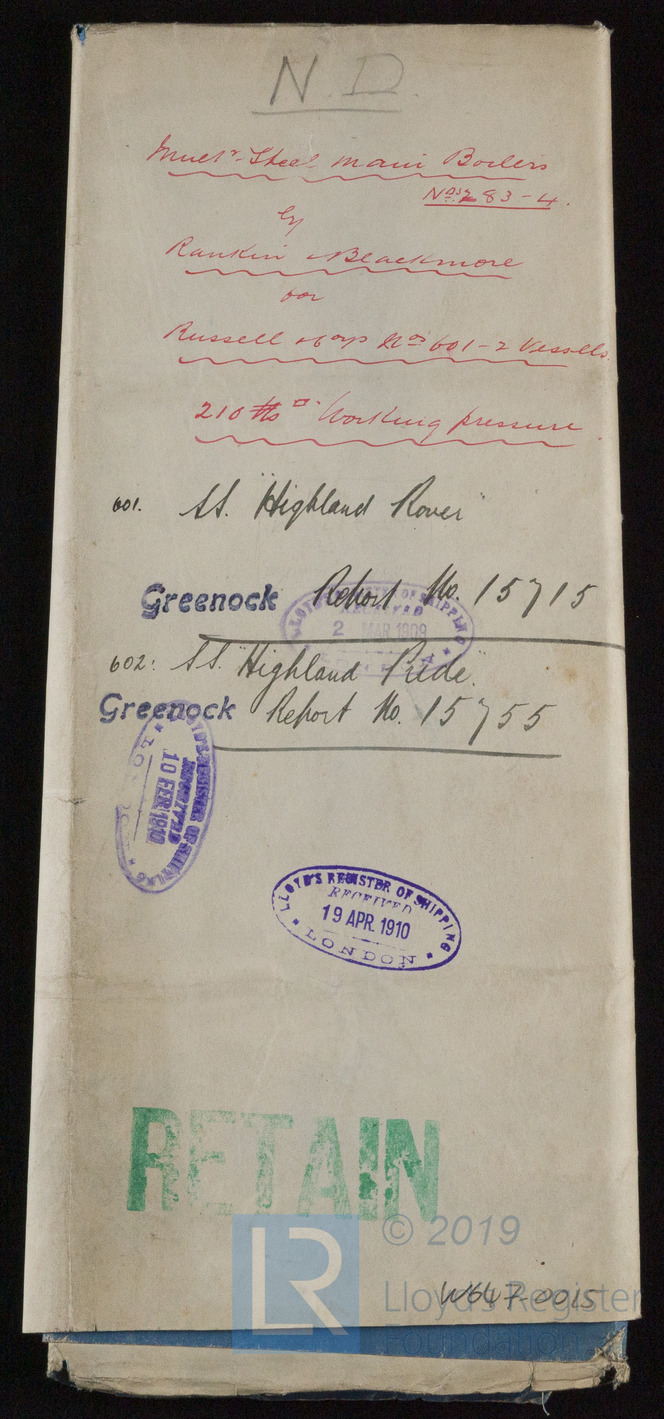 N.D.
Mult^r Steel Main Boilers
Nos 283-4.
by
Rankin & Blackmore
for
Russell & Coys Nos 601-2 Vessells.
210 lbs □" Working pressure.
601. SS. "Highland Rover"
Greenock Report No. 15715
LLOYD'S REGISTER OF SHIPPING
RECEIVED
2 MAR 1909
602: SS. "Highland Pride".
Greenock Report No. 15755
LLOYD'S REGISTER OF SHIPPING
RECEIVED
10 FEB 1910
LLOYD'S REGISTER OF SHIPPING
RECEIVED
19 APR. 1910
LONDON
RETAIN
LR
© 2019
Lloyd's Register
Foundation
W647-0015